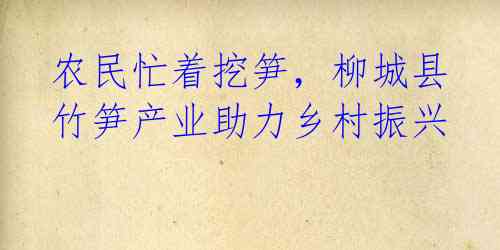 农民忙着挖笋，柳城县
竹笋产业助力乡村振兴